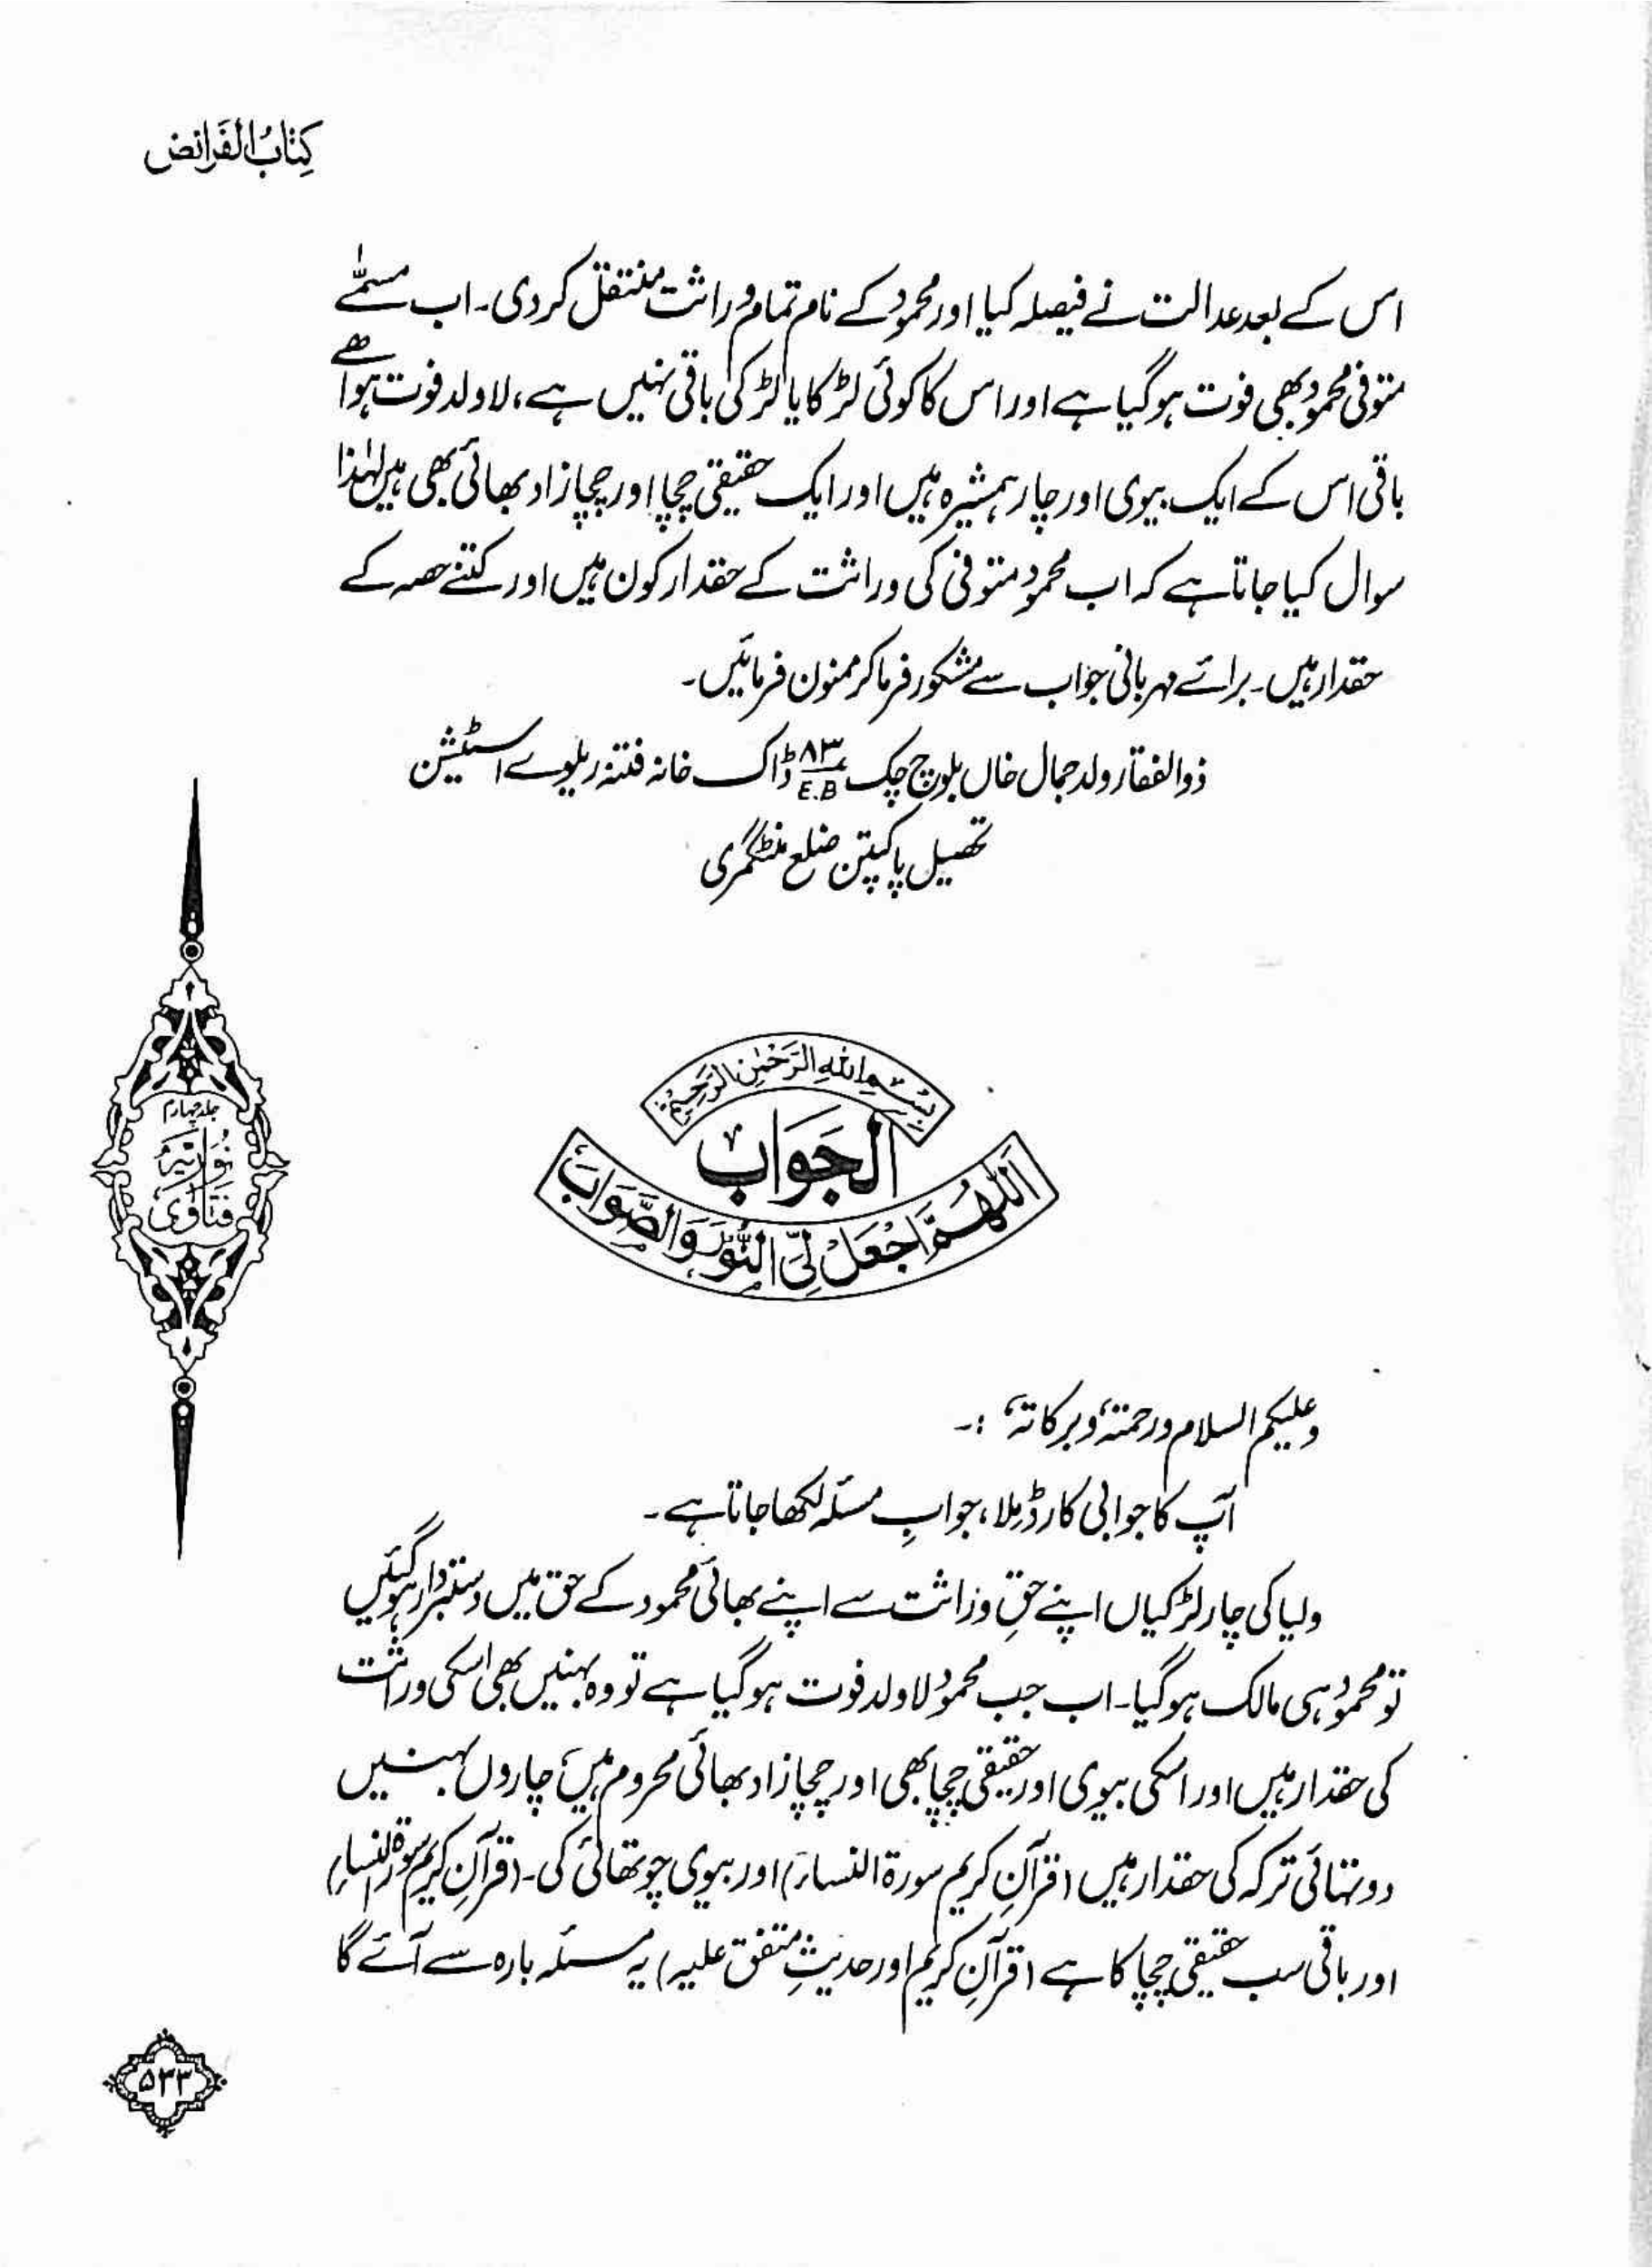 کِتَابُ الْفَرَائِض
اس کے بعد عدالت نے فیصلہ کیا اور محمود کے نام تمام وراثت منتقل کر دی۔ اب مسمّے
متوفی محمود بھی فوت ہو گیا ہے اور اس کا کوئی لڑکا یا لڑکی باقی نہیں ہے، لاولد فوت ہوا ھے
باقی اس کے ایک بیوی اور چار ہمشیرہ ہیں اور ایک حقیقی چچا اور چچازاد بھائی بھی ہیں لہٰذا
سوال کیا جاتا ہے کہ اب محمود متوفی کی وراثت کے حقدار کون ہیں اور کتنے حصہ کے
حقدار ہیں۔ برائے مہربانی جواب سے مشکور فرما کر ممنون فرمائیں۔
ذوالفقار ولد جمال خاں بلوچ چک ۸۳ E.B ڈاک خانہ فتنہ ریلوے اسٹیشن
تحصیل پاکپتن ضلع منٹگمری
بِسْمِ اللهِ الرَّحْمٰنِ الرَّحِيْمِ
اَلْجَوَابُ
اَللّٰهُمَّ اجْعَلْ لِّيَ النُّوْرَ وَالصَّوَابَ
جلد چہارم
نُوْرِيَّہ
فَتَاوٰی
وعلیکم السلام ورحمتہٗ وبرکاتہٗ :۔
آپ کا جوابی کارڈ مِلا، جوابِ مسئلہ لکھا جاتا ہے۔
ولیا کی چار لڑکیاں اپنے حقِ وراثت سے اپنے بھائی محمود کے حق میں دستبردار ہو گئیں
تو محمود ہی مالک ہو گیا۔ اب جب محمود لاولد فوت ہو گیا ہے تو وہ بہنیں بھی اسکی وراثت
کی حقدار ہیں اور اسکی بیوی اور حقیقی چچا بھی اور چچازاد بھائی محروم ہیں، چاروں بہنیں
دو تہائی ترکہ کی حقدار ہیں (قرآنِ کریم سورۃ النساء) اور بیوی چوتھائی کی۔ (قرآنِ کریم سورۃ النساء)
اور باقی سب حقیقی چچا کا ہے (قرآنِ کریم اور حدیثِ متفق علیہ) یہ مسئلہ بارہ سے آئے گا
۵۳۳